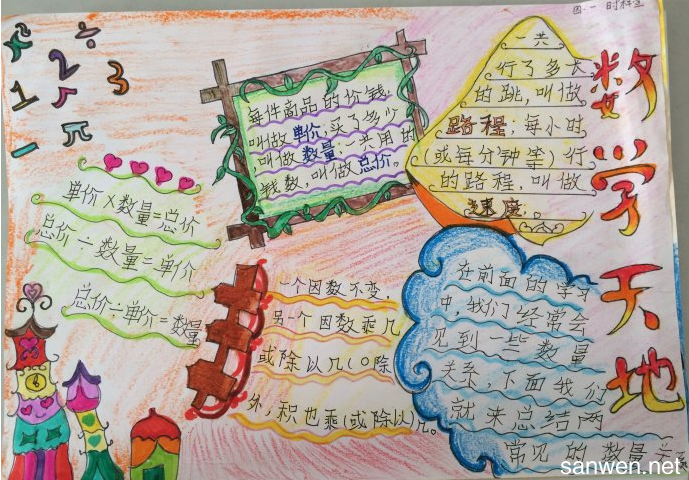 数学天地
×
÷
1
2
3
一
π
每件商品的价钱,
叫做单价;买了多少
叫做数量;一共用的
钱数,叫做总价。
一共
行了多长
的跳,叫做
路程;每小时
(或每分钟等)行
的路程,叫做
速度。
单价×数量=总价
总价÷数量=单价
总价÷单价=数量
一个因数不变,
另一个因数乘几
或除以几(0除
外,积也乘(或除以)几。
在前面的学习
中,我们经常会
见到一些数量
关系,下面我们
就来总结两
常见的数量关系
sanwen.net